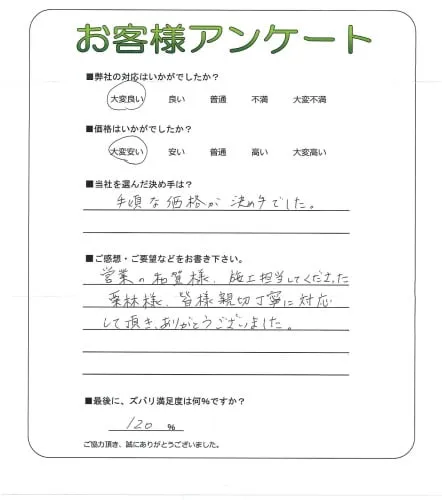 お客様アンケート
■弊社の対応はいかがでしたか?
大変良い 良い 普通 不満 大変不満
■価格はいかがでしたか?
大変安い 安い 普通 高い 大変高い
■当社を選んだ決め手は?
手頃な価格が決め手でした。
■ご感想・ご要望などをお書き下さい。
営業の 様、施工担当してくださった
栗林様、皆様親切丁寧に対応
して頂き、ありがとうございました。
■最後に、ズバリ満足度は何%ですか?
120 %
ご協力頂き、誠にありがとうございました。